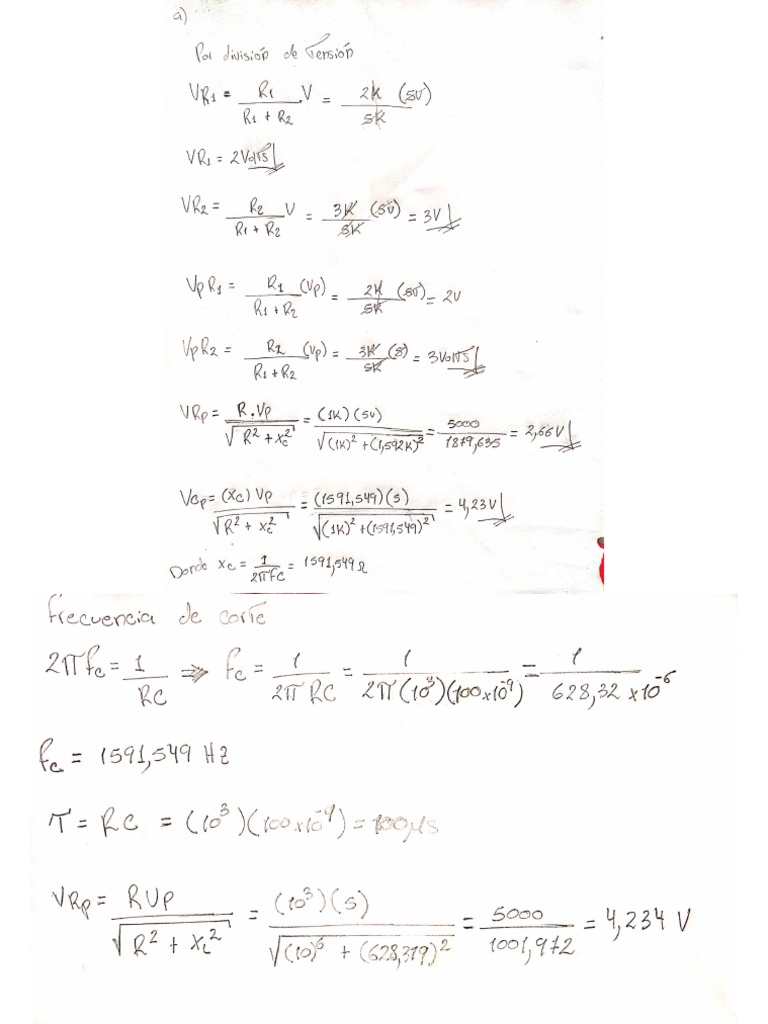 a)
Por división de Tensión
VR1 = R1 / (R1 + R2) . V = 2K (5V) / 5K
VR1 = 2Volts
VR2 = R2 / (R1 + R2) V = 3K (5V) / 5K = 3V
VpR1 = R1 / (R1 + R2) (Vp) = 2K / 5K (5V) = 2V
VpR2 = R2 / (R1 + R2) (Vp) = 3K / 5K (5) = 3Volts
VRp = R.Vp / √(R² + Xc²) = (1K)(5V) / √((1K)² + (1,592K)²) = 5000 / 1879,635 = 2,66V
Vcp = (Xc) Vp / √(R² + Xc²) = (1591,549)(5) / √((1K)² + (1591,549)²) = 4,23V
Donde Xc = 1 / 2πfc = 1591,549Ω
Frecuencia de corte
2πfc = 1 / RC ⇒ fc = 1 / 2π RC = 1 / 2π(10³)(100x10⁻⁹) = 1 / 628,32 x10⁻⁶
fc = 1591,549 Hz
T = RC = (10³)(100x10⁻⁹) = 100μs
VRp = RVp / √(R² + XL²) = (10³)(5) / √((10)⁶ + (628,319)²) = 5000 / 1001,972 = 4,234 V